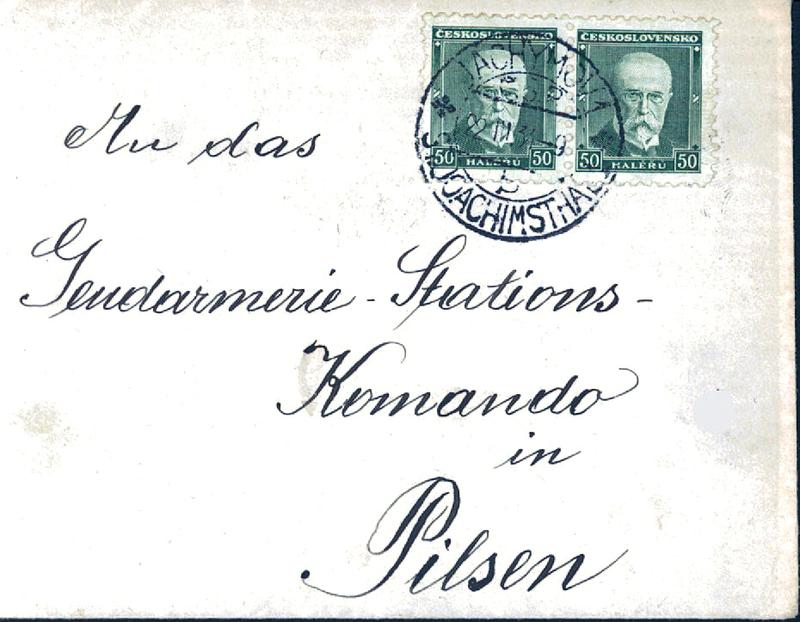 ČESKOSLOVENSKO ČESKOSLOVENSKO
JÁCHYMOV 1
50 HALÉŘŮ 50 50 HALÉŘŮ 50
JOACHIMSTHAL
An das
Gendarmerie - Stations -
Komando
in
Pilsen